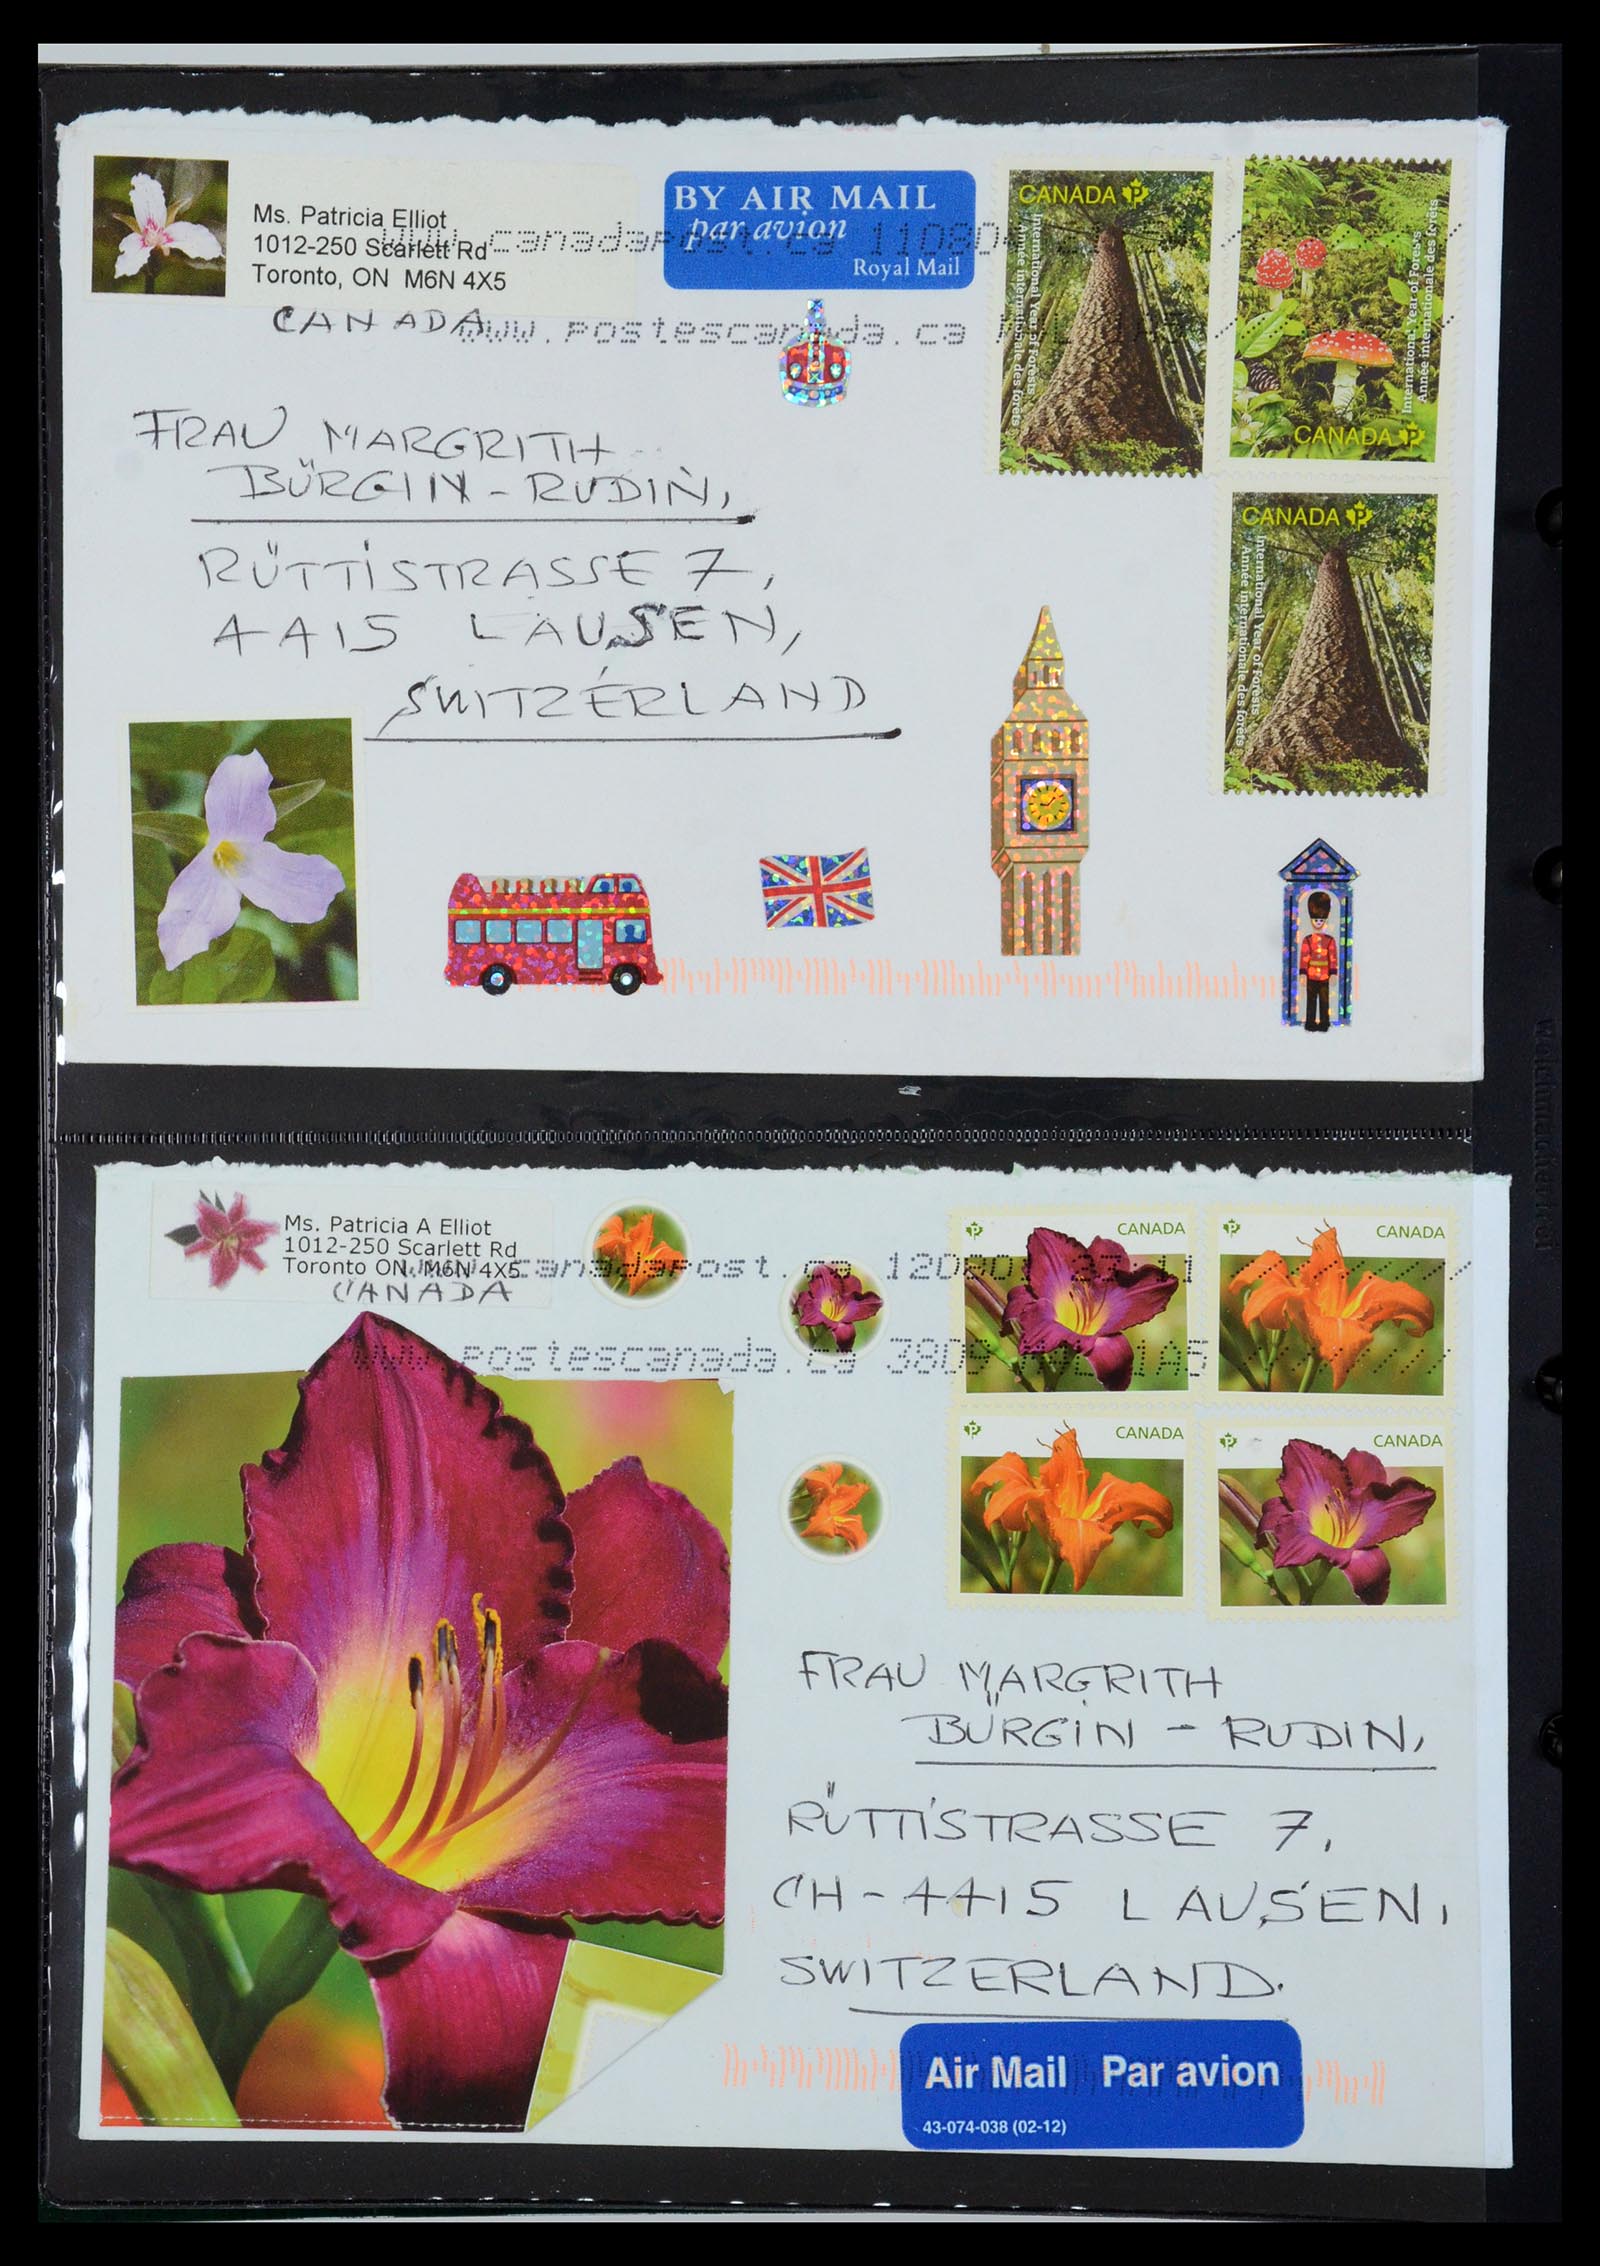 Ms. Patricia Elliot
1012-250 Scarlett Rd
Toronto, ON M6N 4X5
CANADA
BY AIR MAIL
par avion
Royal Mail
www.canadapost.ca 11080
www.postescanada.ca
CANADA P
International Year of Forests
Année internationale des forêts
International Year of Forests
Année internationale des forêts
CANADA P
CANADA P
International Year of Forests
Année internationale des forêts
FRAU MARGRITH
BÜRGIN - RUDIN,
RÜTTISTRASSE 7,
4415 LAUSEN,
SWITZERLAND
Ms. Patricia A Elliot
1012-250 Scarlett Rd
Toronto ON M6N 4X5
CANADA
www.canadapost.ca 12080
www.postescanada.ca 38D
P CANADA
P CANADA
P CANADA
P CANADA
FRAU MARGRITH
BÜRGIN - RUDIN,
RÜTTISTRASSE 7,
CH-4415 LAUSEN,
SWITZERLAND.
Air Mail Par avion
43-074-038 (02-12)
weichmacherfrei